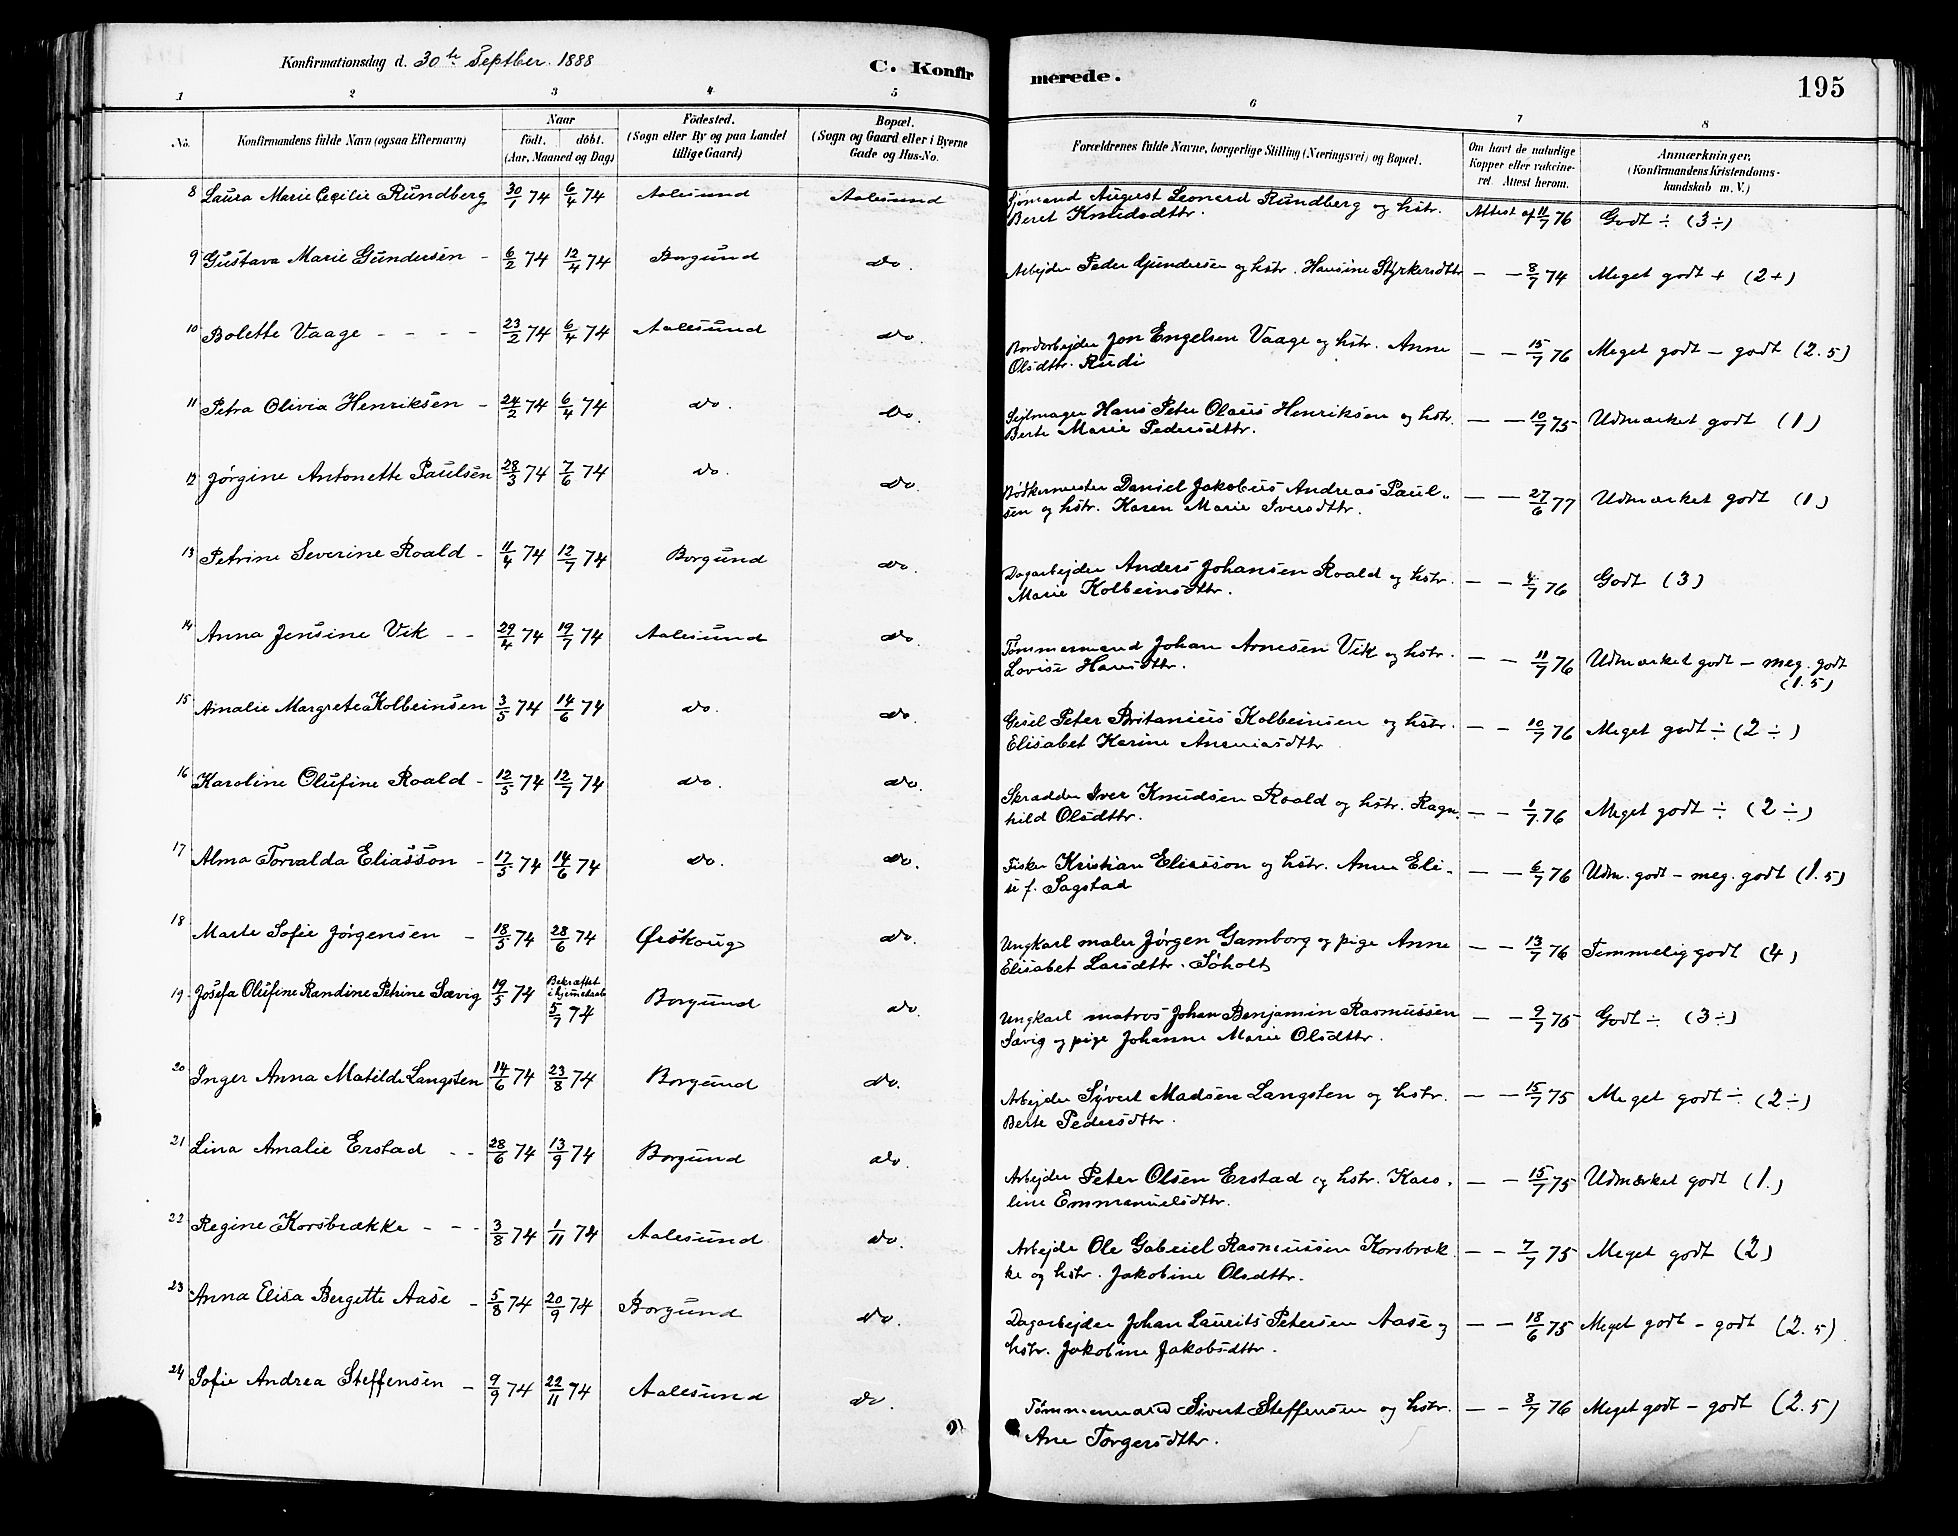 Konfirmationsdag d. 30te Septber. 1888
C. Konfirmerede.
195
1 2 3 4 5 6 7 8
No.
Konfirmandens fulde Navn (ogsaa Efternavn)
Naar
födt. döbt.
(Aar, Maaned og Dag)
Födested.
(Sogn eller By og paa Landet
tillige Gaard)
Bopæl.
(Sogn og Gaard eller i Byerne
Gade og Hus-No.
Forældrenes fulde Navne, borgerlige Stilling (Næringsvei) og Bopæl.
Om havt de naturlige
Kopper eller vakcine-
ret. Attest herom.
Anmærkninger.
(Konfirmandens Kristendoms-
kundskab m. V.)
8 Laura Marie Cecilie Rundberg 30/1 74 6/4 74 Aalesund Aalesund Sjømand August Leonard Rundberg og hstr. Attest af 11/7 76 Godt ÷ (3÷)
Beret Knudsdttr.
9 Gustava Marie Gundersen - 6/2 74 12/4 74 Borgund do. Arbejder Peder Gundersen og hstr. Hansine Styrkersdttr — — 8/7 74 Meget godt + (2+)
10 Bolette Vaage - - - - 23/2 74 6/4 74 Aalesund do. Bordarbejder Jon Engelsen Vaage og hstr. Anne — — 15/7 76 Meget godt — godt (2.5)
Olsdttr. Rudi
11 Petra Olivia Henriksen - 24/2 74 6/4 74 do. do. Sejlmager Hans Peter Olaus Henriksen og hstr. — — 10/7 75 Udmærket godt (1)
Berte Marie Pedersdttr.
12 Jørgine Antonette Paulsen 28/3 74 7/6 74 do. do. Bødkermester Daniel Jakobus Andreas Paul- — — 27/6 77 Udmærket godt (1)
sen og hstr. Karen Marie Iversdttr.
13 Petrine Severine Roald - 11/4 74 12/7 74 Borgund do. Dagarbejder Anders Johansen Roald og hstr. — — 4/7 76 Godt (3)
Marie Kolbeinsdttr.
14 Anna Jensine Vik - - 29/4 74 19/7 74 Aalesund do. Tømmermand Johan Arnesen Vik og hstr. — — 11/7 76 Udmærket godt — meg. godt
Lovise Hansdttr. (1.5)
15 Amalie Margrete Kolbeinsen 3/5 74 14/6 74 do. do. Gesel Peter Britanius Kolbeinsen og hstr. — — 10/7 76 Meget godt ÷ (2÷)
Elisabet Karine Ananiasdttr
16 Karoline Olufine Roald - 12/5 74 12/7 74 do. do. Skrædder Iver Knudsen Roald og hstr. Ragn- — — 1/7 76 Meget godt ÷ (2÷)
hild Olsdttr.
17 Alma Torvalda Eliasson - 17/5 74 14/6 74 do. do. Fisker Kristian Eliasson og hstr. Anne Eli- — — 6/7 76 Udm. godt — meg. godt (1.5)
se f. Sagstad
18 Marte Sofie Jørgensen - 18/5 74 28/6 74 Ørskoug do. Ungkarl maler Jørgen Gamborg og pige Anne — — 13/7 76 Temmelig godt (4)
Elisabet Larsdttr. Søholt
19 Josefa Olufine Randine Petrine Sævig 19/5 74 Bekræftet i hjemmedaab 5/7 74 Borgund do. Ungkarl matros Johan Benjamin Rasmussen — — 9/7 75 Godt ÷ (3÷)
Sævig og pige Johanne Marie Olsdttr.
20 Inger Anna Matilde Langsten 14/6 74 23/8 74 Borgund do. Arbejder Syvert Madsen Langsten og hstr. — — 15/7 75 Meget godt ÷ (2÷)
Berte Pedersdttr.
21 Lina Amalie Erstad - - 28/6 74 13/9 74 Borgund do. Arbejder Peter Olsen Erstad og hstr. Karo- — — 15/7 75 Udmærket godt (1.)
line Emmanuelsdttr.
22 Regine Korsbrække - - - 3/8 74 1/11 74 Aalesund do. Arbejde Ole Gabriel Rasmussen Korsbræk- — — 7/7 75 Meget godt (2)
ke og hstr. Jakobine Olsdttr.
23 Anna Elisa Bergette Aase - 5/8 74 20/9 74 Borgund do. Dagarbejder Johan Laurits Petersen Aase og — — 18/6 75 Meget godt — godt (2.5)
hstr. Jakobine Jakobsdttr.
24 Sofie Andrea Steffensen - 9/9 74 22/11 74 Aalesund do. Tømmermand Sivert Steffensen og hstr. — — 8/7 76 Meget godt — godt (2.5)
Ane Torgersdttr.